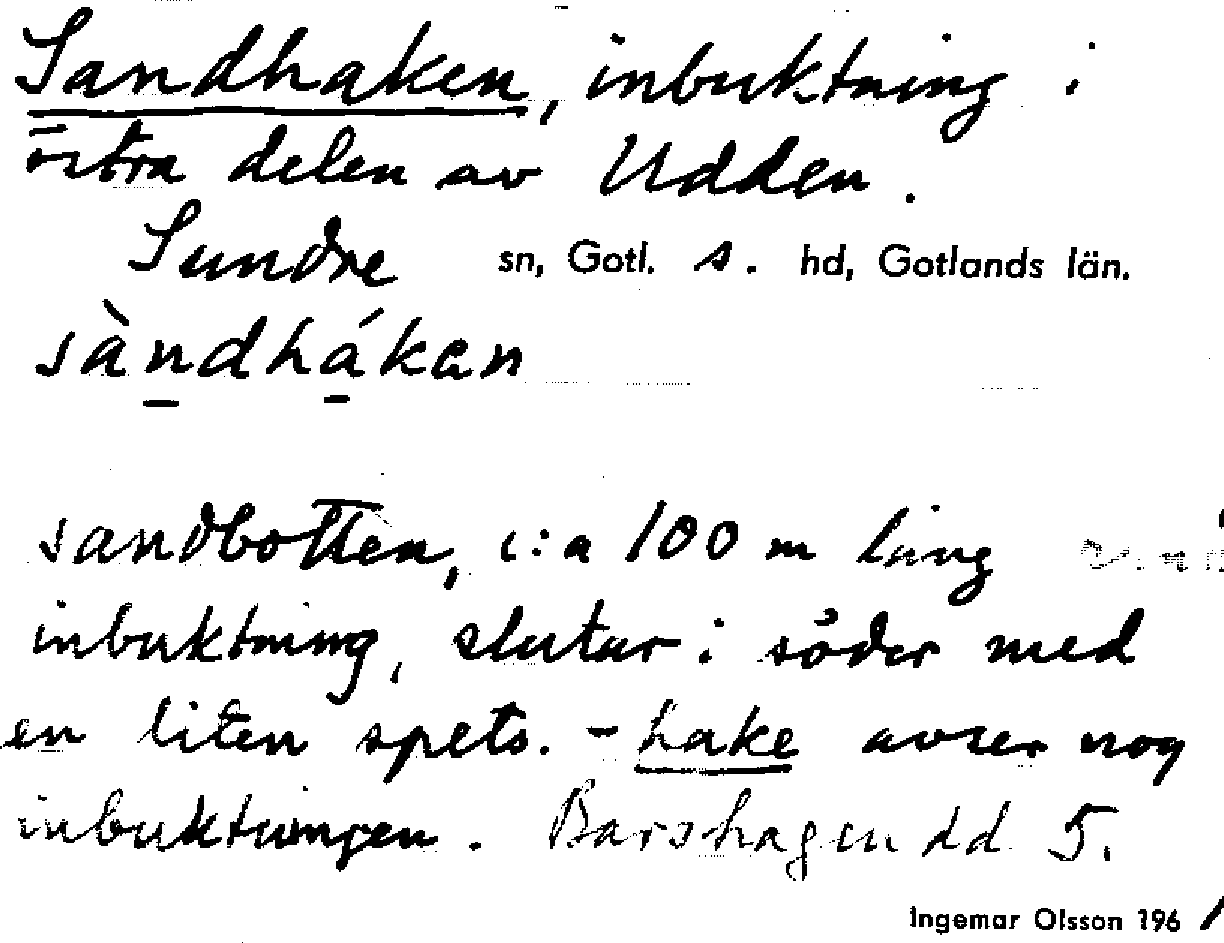 Sandhaken, inbuktning i
östra delen av Udden.
Sundre sn, Gotl. s. hd, Gotlands län.
sàndhákan
sandbotten, c:a 100 m lång
inbuktning, slutar i söder med
en liten spets. -hake avser nog
inbuktningen. Barshagen dd 5.
Ingemar Olsson 1961